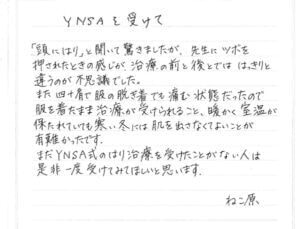 YNSAを受けて
「頭にはり」と聞いて驚きましたが、先生にツボを
押されたときの感じが治療の前と後とでははっきりと
違うのが不思議でした。
また四十肩で服の脱ぎ着でも痛む状態だったので
服を着たまま治療が受けられること、暖かく室温が
保たれていても寒い冬には肌を出さなくてよいことが
有難かったです。
まだYNSA式のはり治療を受けたことがない人は
是非一度受けてみてほしいと思います。
ねこ原